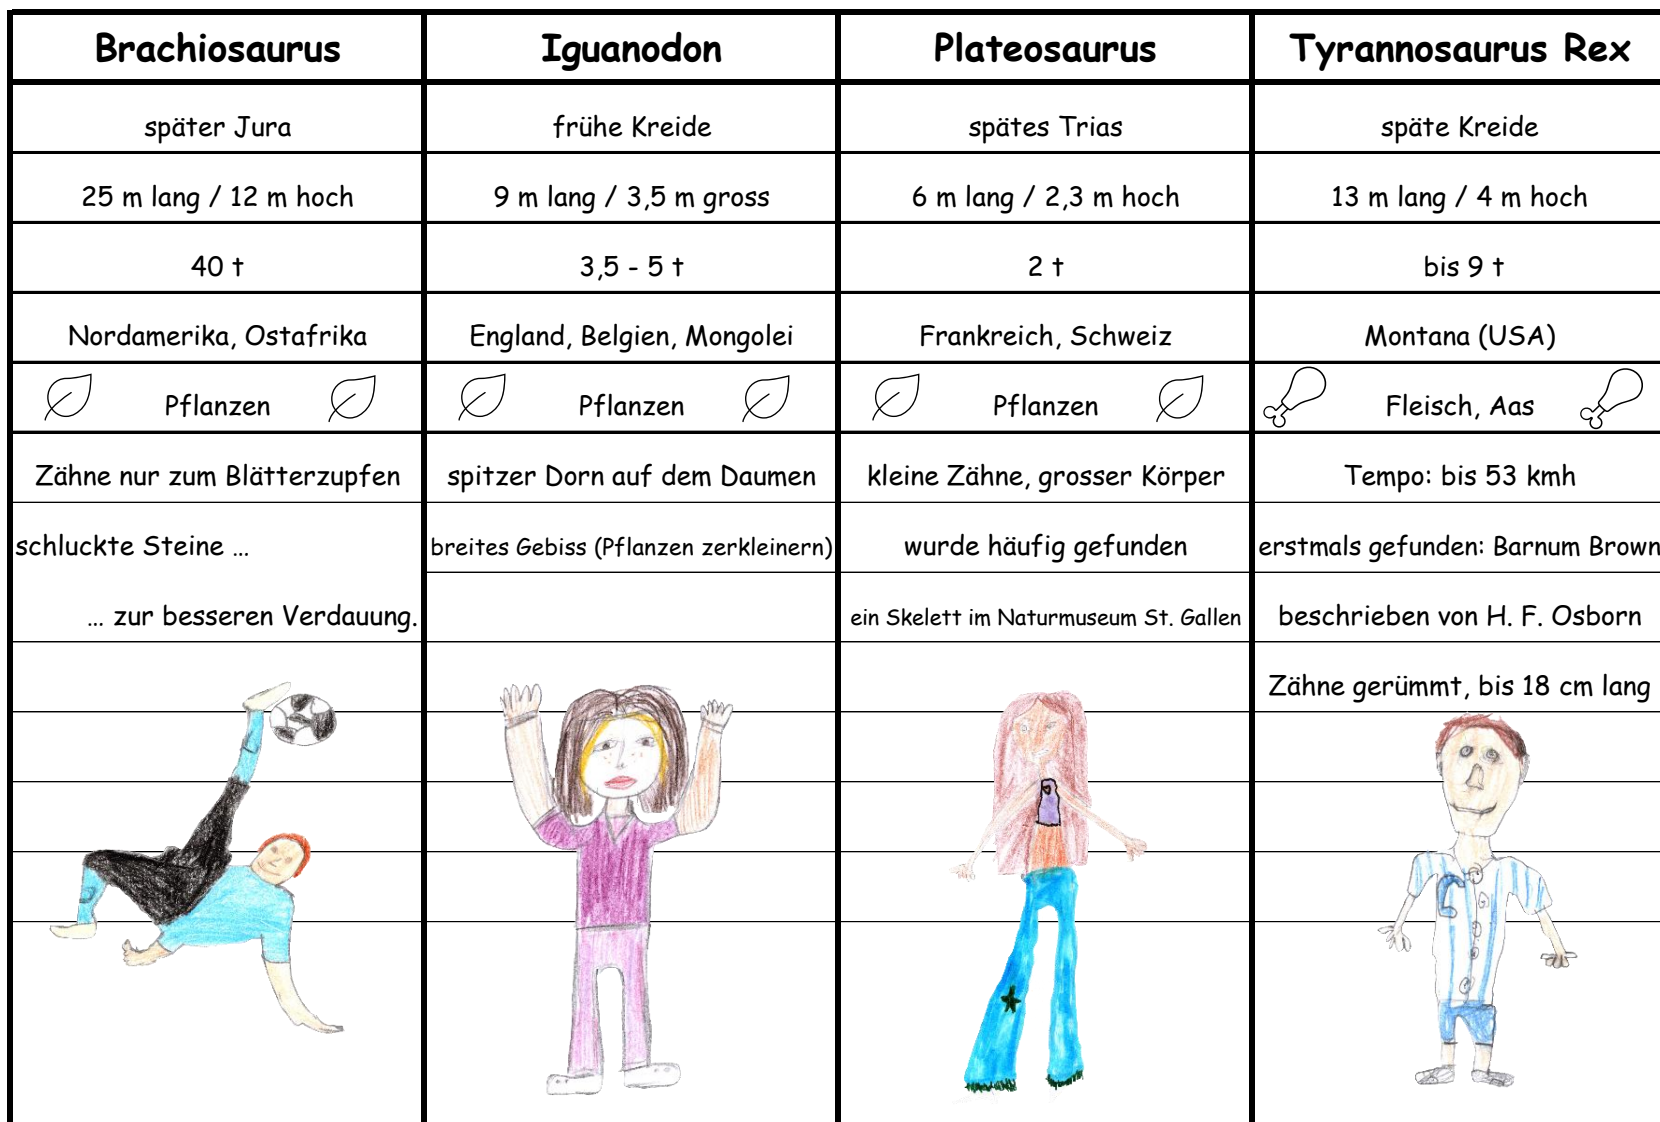 Brachiosaurus Iguanodon Plateosaurus Tyrannosaurus Rex
später Jura frühe Kreide spätes Trias späte Kreide
25 m lang / 12 m hoch 9 m lang / 3,5 m gross 6 m lang / 2,3 m hoch 13 m lang / 4 m hoch
40 t 3,5 - 5 t 2 t bis 9 t
Nordamerika, Ostafrika England, Belgien, Mongolei Frankreich, Schweiz Montana (USA)
Pflanzen Pflanzen Pflanzen Fleisch, Aas
Zähne nur zum Blätterzupfen spitzer Dorn auf dem Daumen kleine Zähne, grosser Körper Tempo: bis 53 kmh
schluckte Steine ... breites Gebiss (Pflanzen zerkleinern) wurde häufig gefunden erstmals gefunden: Barnum Brown
... zur besseren Verdauung. ein Skelett im Naturmuseum St. Gallen beschrieben von H. F. Osborn
Zähne gerümmt, bis 18 cm lang